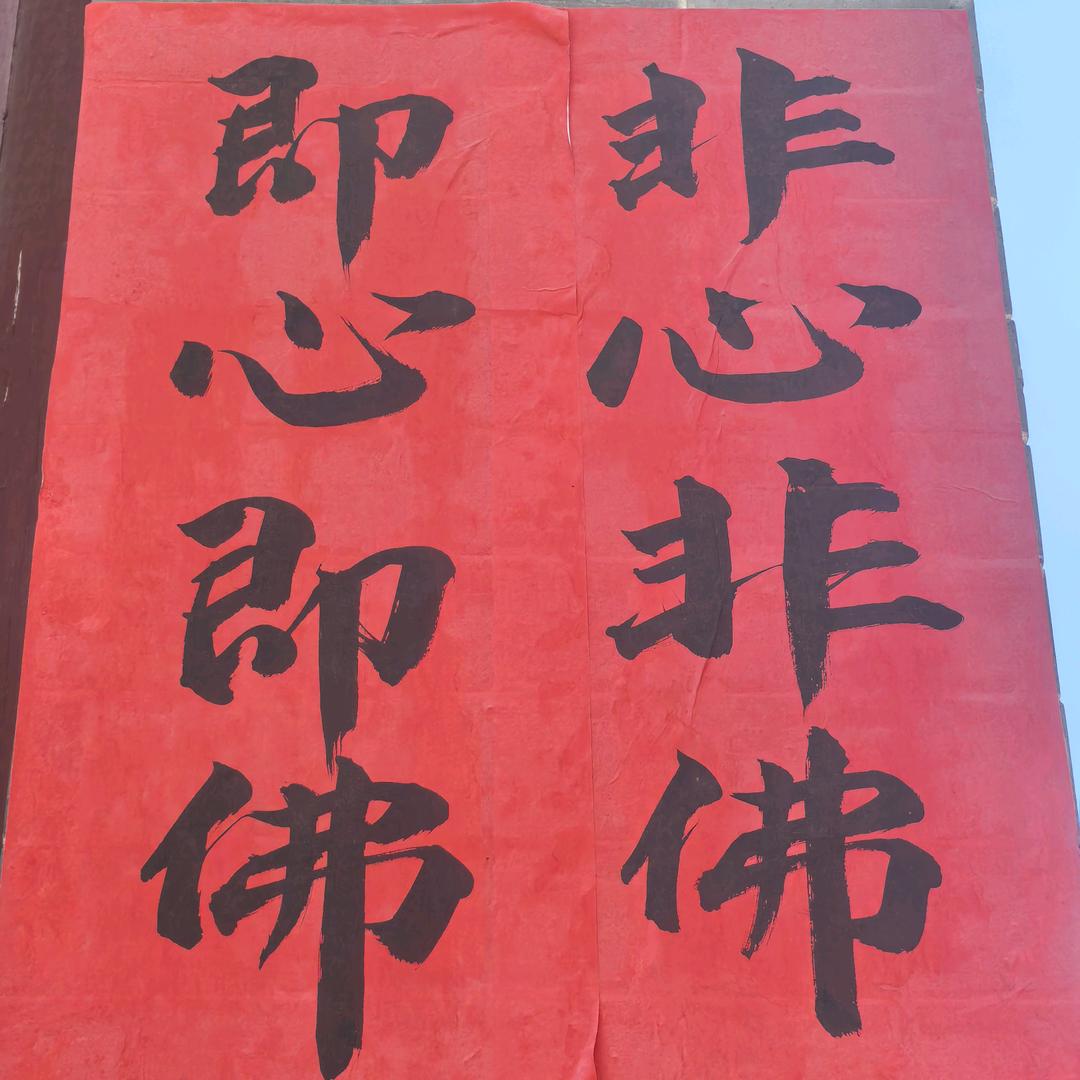 非心非佛
即心即佛